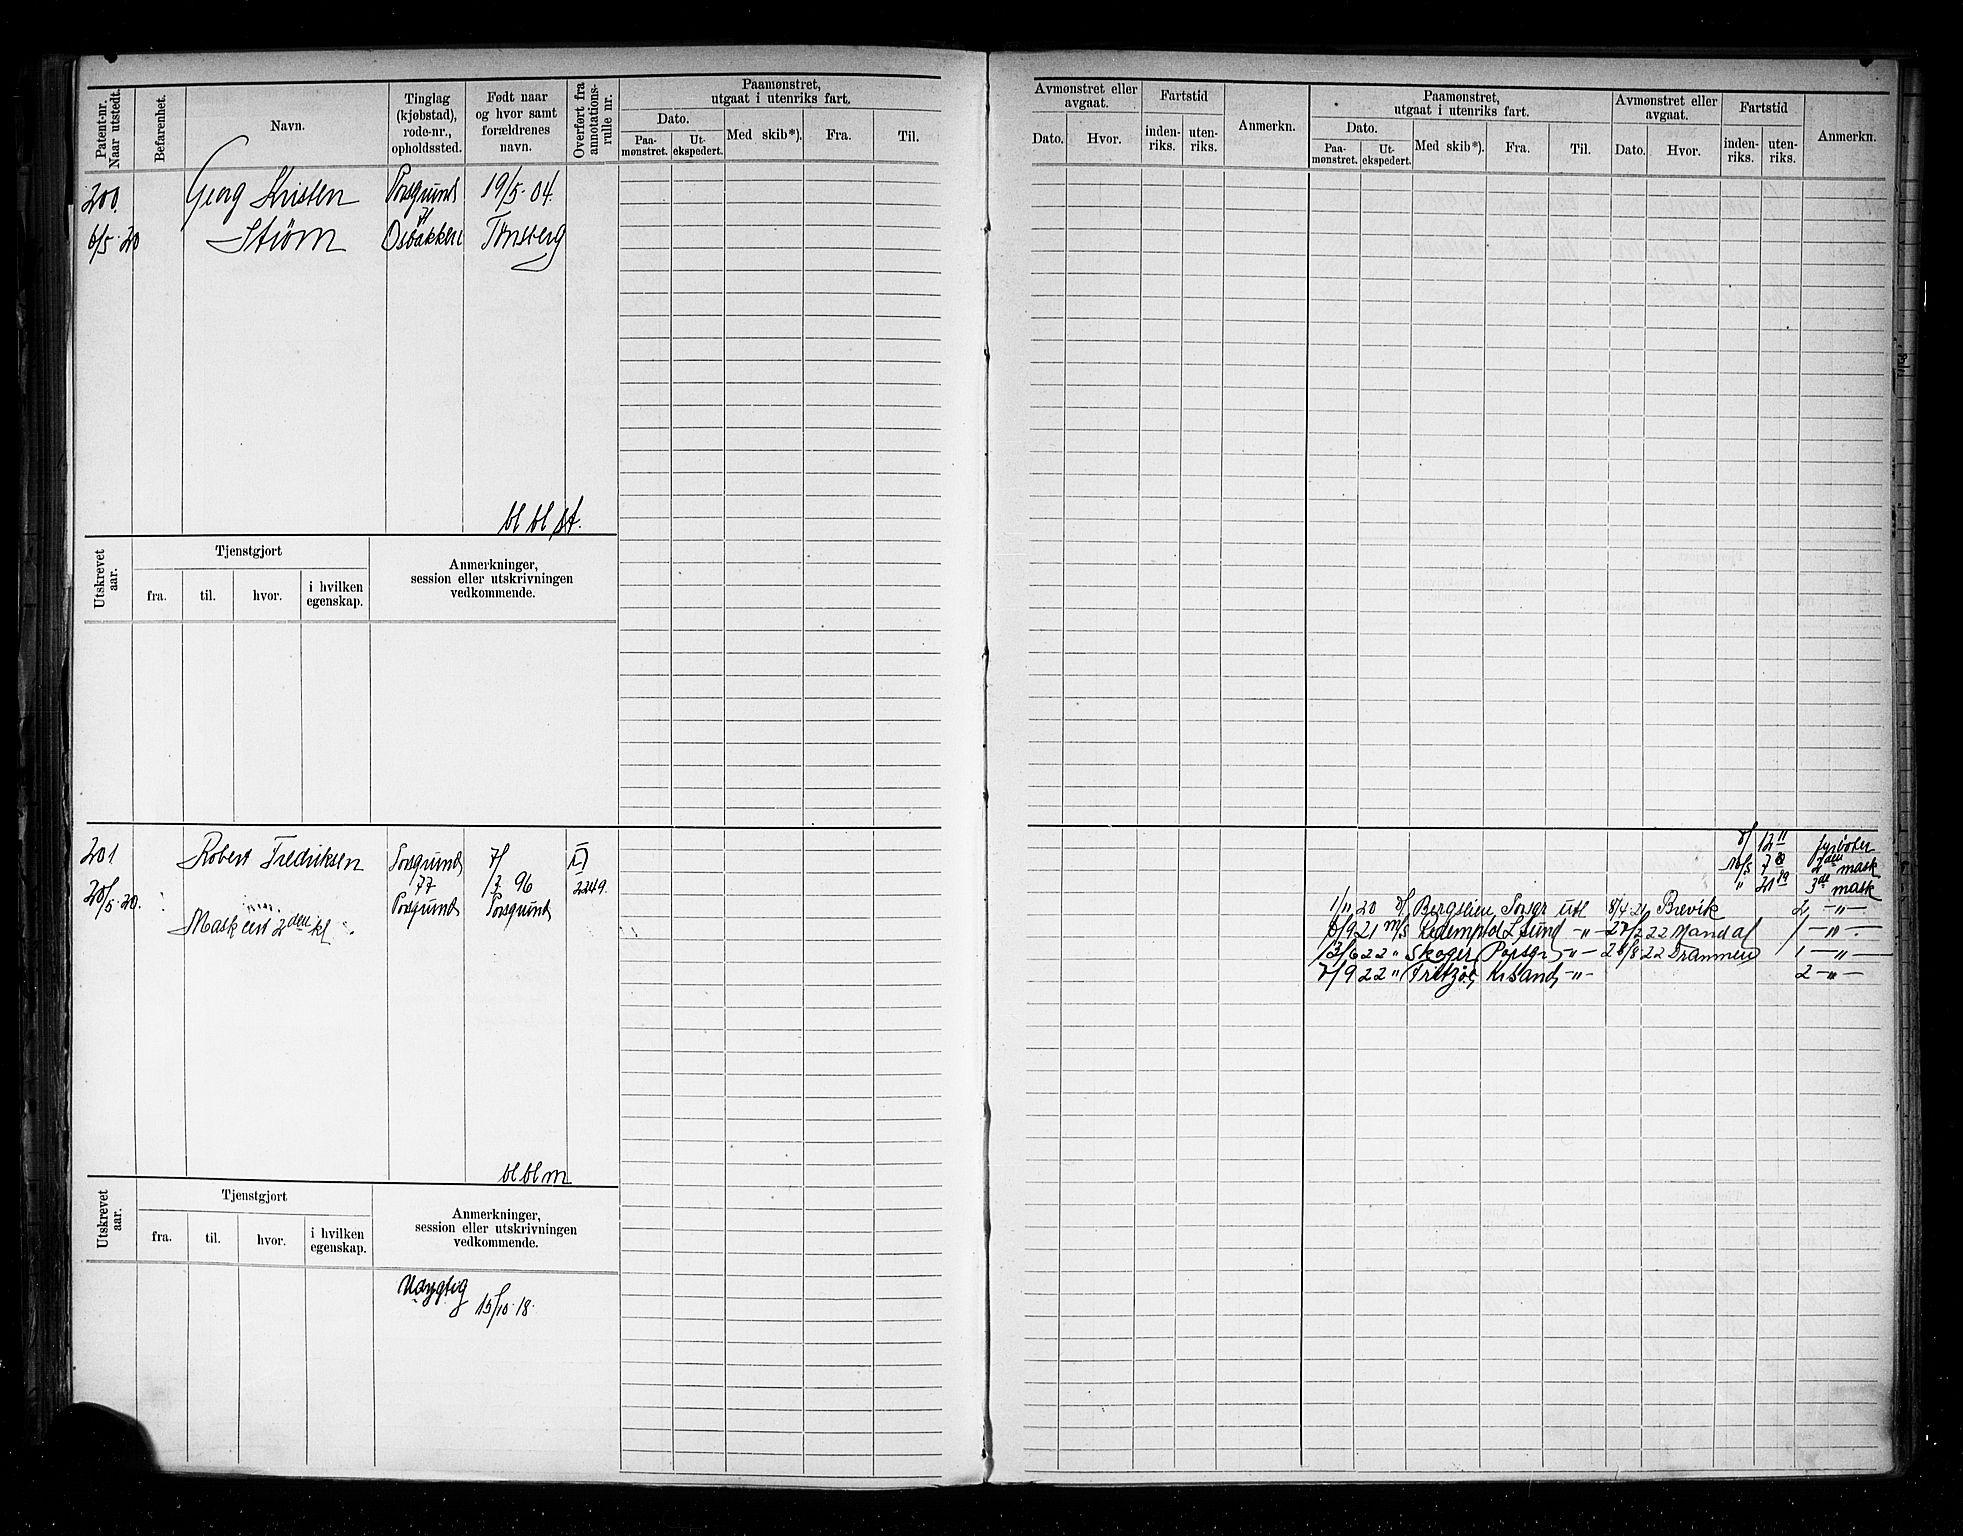 Patent-nr.
Naar utstedt.
Befarenhet.
Navn.
Tinglag
(kjøbstad),
rode-nr.,
opholdssted.
Født naar
og hvor samt
forældrenes
navn.
Overført fra
annotations-
rulle nr.
Paamønstret,
utgaat i utenriks fart.
Dato.
Paa-
mønstret.
Ut-
ekspedert.
Med skib*).
Fra.
Til.
200.
Georg Kristen
Porsgrund
19/5 - 04.
6/5 - 20
Strøm
Osbakken
Tønsberg
bl bl st.
Utskrevet
aar.
Tjenstgjort
fra.
til.
hvor.
i hvilken
egenskap.
Anmerkninger,
session eller utskrivningen
vedkommende.
201
Robert Fredriksen
Porsgrund
77
Porsgrund
7/7 96
Porsgrund
II
2249.
20/5 - 20.
Mask cert 2den kl
bl bl m
Utskrevet
aar.
Tjenstgjort
fra.
til.
hvor.
i hvilken
egenskap.
Anmerkninger,
session eller utskrivningen
vedkommende.
Udygtig
15/10 - 18.
Avmønstret eller
avgaat.
Dato.
Hvor.
Fartstid
inden-
riks.
uten-
riks.
Anmerkn.
Paamønstret,
utgaat i utenriks fart.
Dato.
Paa-
mønstret.
Ut-
ekspedert.
Med skib*).
Fra.
Til.
Avmønstret eller
avgaat.
Dato.
Hvor.
Fartstid
inden-
riks.
uten-
riks.
Anmerkn.
12 11 fyrbøter
m/s 7 2den mask
" 3de mask
1/11 20 Bergslien Porsgr Utl 8/4 21 Brevik 2 -"-
6/9 21 m/s L.sund -"- 27/2 22 Mandal 1 -"-
13/6 22 " Skoger Porsgr -"- 26/8 22 Drammen 1 -"-
7/9 22 " Fritzøe Kr sand -"- 2 -"-